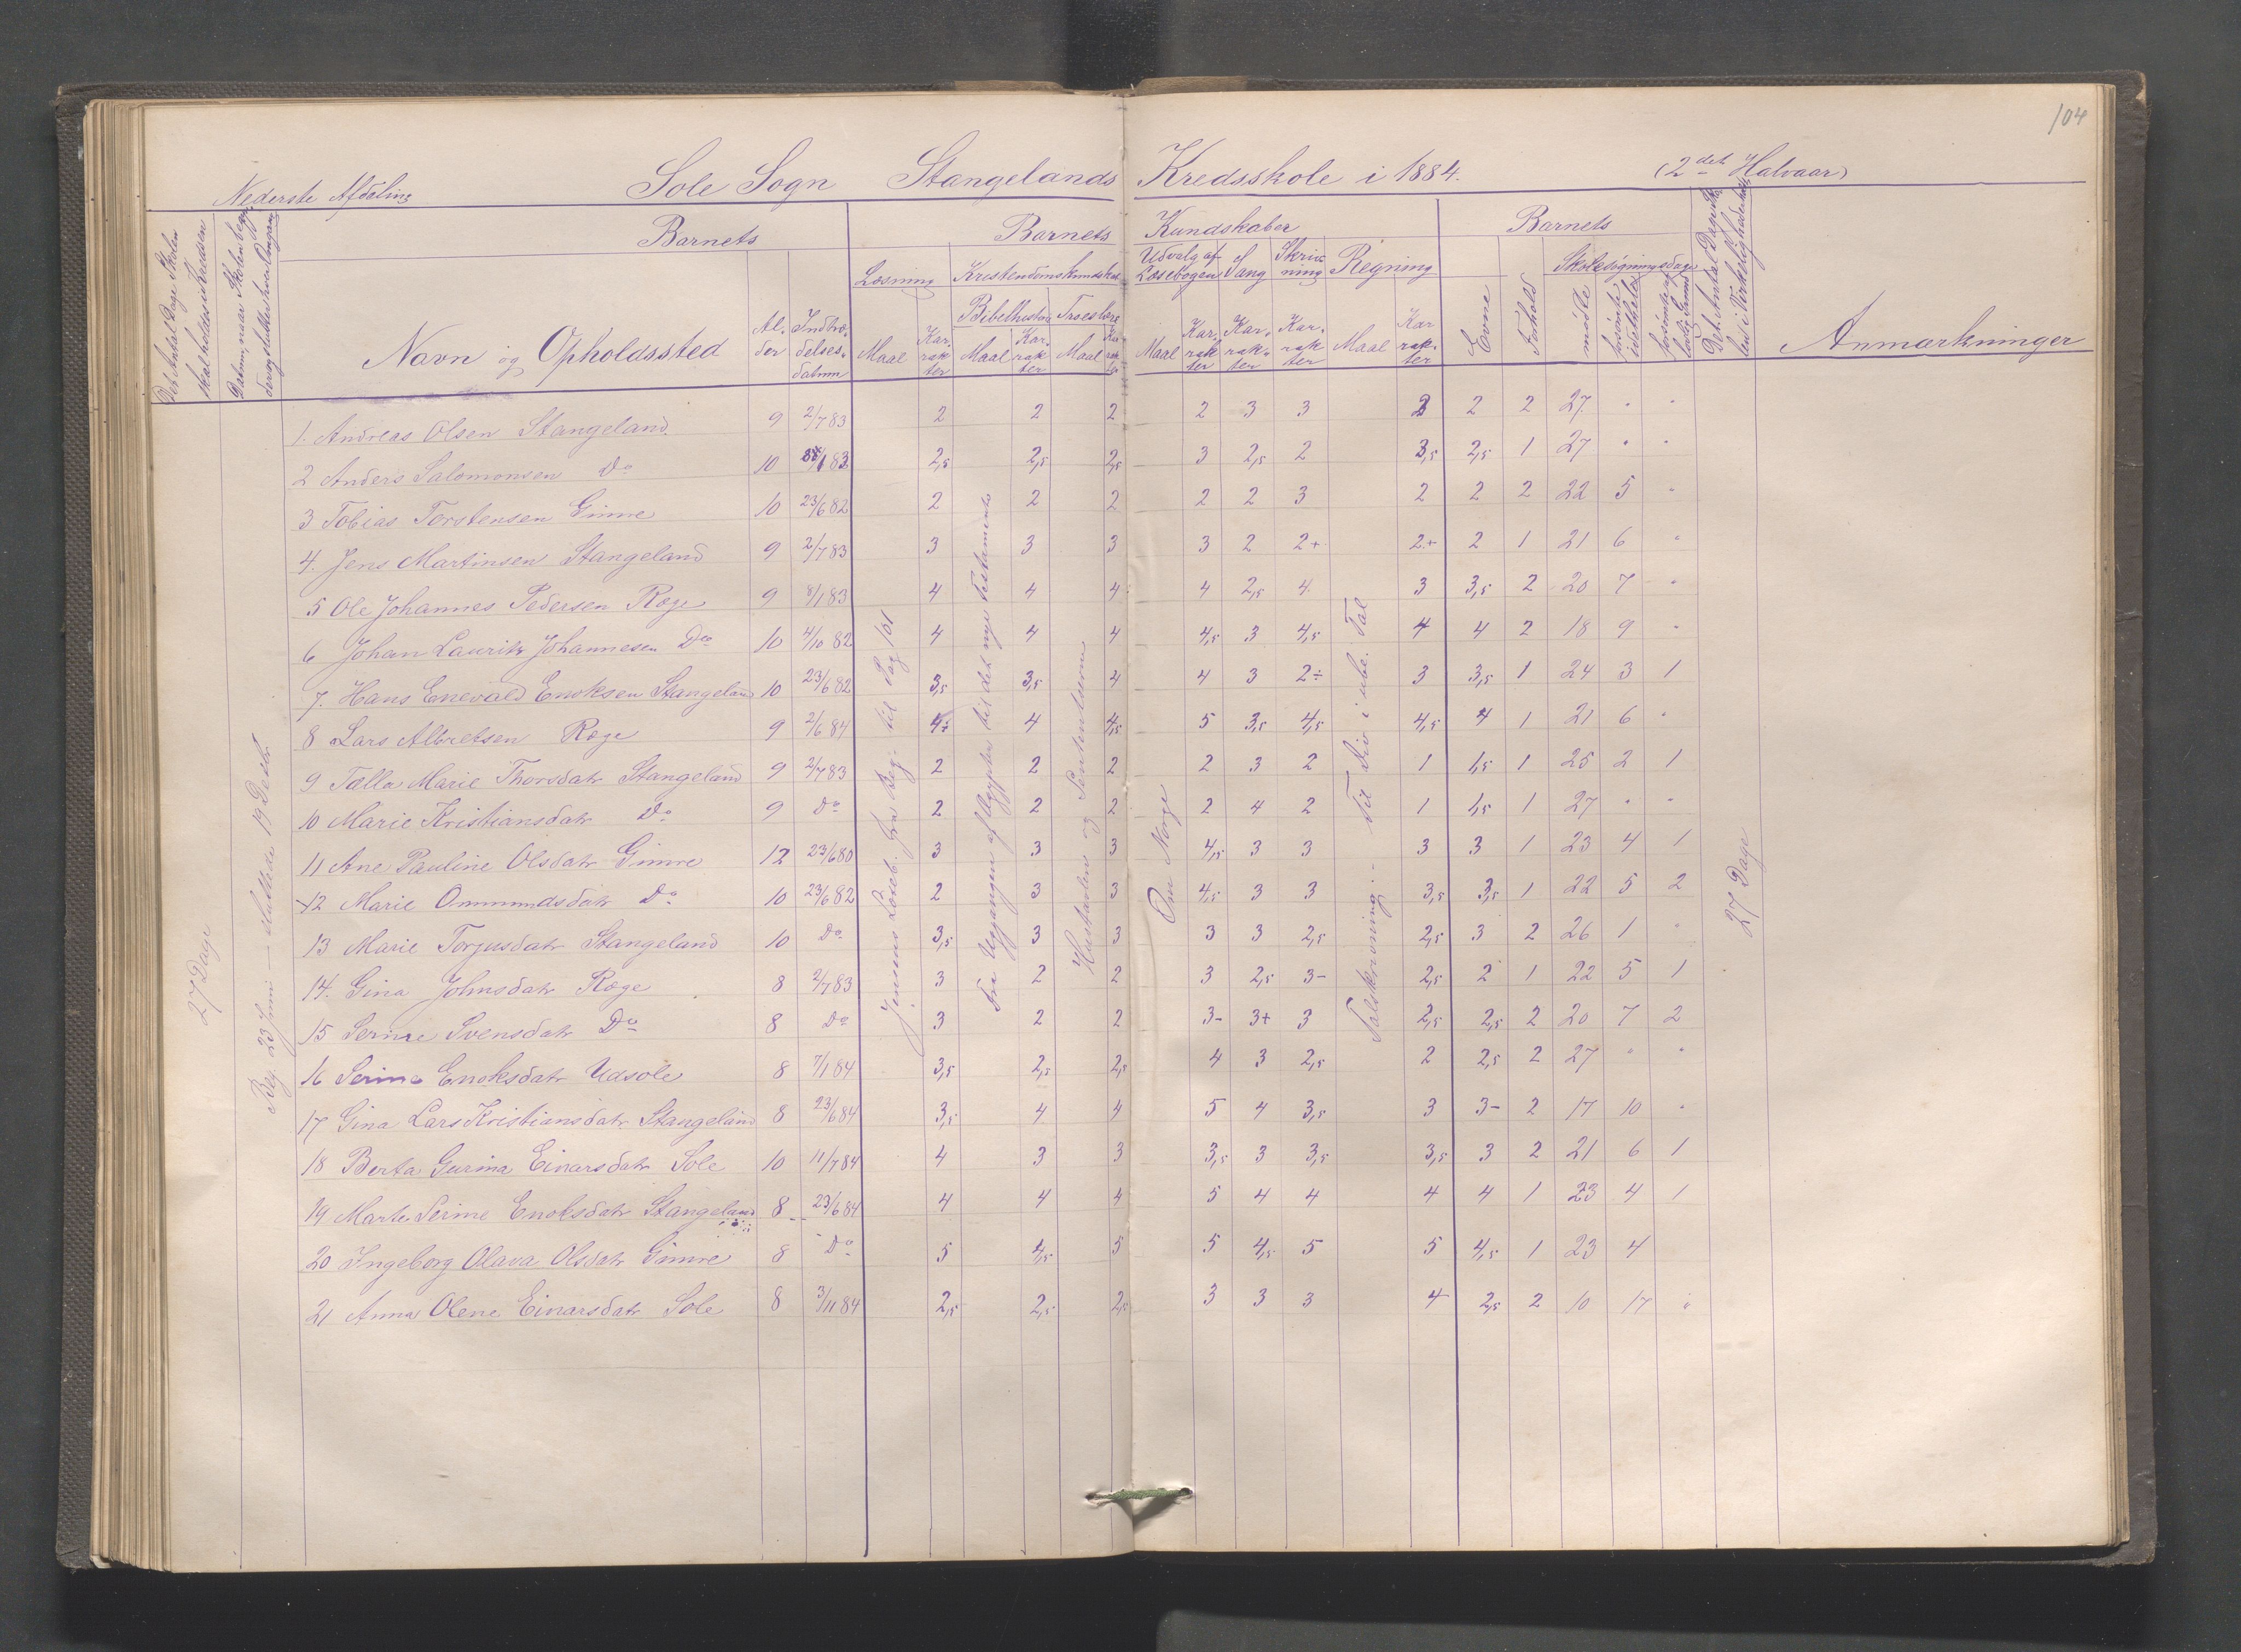 104
Nederste Afdeling Sole Sogn Stangelands Kredsskole i 1884. (2det Halvaar)
Det Antal Dage Skolen skal holdes i Kredsen
Datum, naar Skolen begynder og slutter hver Omgang
Barnets
Navn og Opholdssted
Alder
Indtrædelsesdatum
Barnets Kundskaber
Læsning
Maal
Karakter
Kristendomskundskab
Bibelhistorie
Maal
Karakter
Troeslære
Maal
Karakter
Udvalg af Læsebogen
Maal
Karakter
Sang
Karakter
Skrivning
Karakter
Regning
Maal
Karakter
Barnets
Evne
Forhold
Skolesøgningsdage
mødte
forsømte i det hele
forsømte af lovlig Grund
Det Antal Dage Skolen i Virkeligheden
Anmærkninger
27 Dage
Beg. 23 Juni — sluttede 19 Decbr
Jensens Læseb. fra Beg. til Pag 101
Fra Udgangen af Ægypten til det nye Testamente
Hustavlen og Sententserne
Om Norge
Talskrivning — til Div i ube. Tal
27 Dage
1. Andreas Olsen Stangeland. 9 2/7 83 2 2 2 2 3 3 2 2 2 27 " "
2 Anders Salomonsen Do 10 8/1 83 2,5 2,5 2,5 3 2,5 2 3,5 2,5 1 27 " "
3 Tobias Torstensen Gimre 10 23/6 82 2 2 2 2 2 3 2 2 2 22 5 "
4. Jens Martinsen Stangeland 9 2/7 83 3 3 3 3 2 2+ 2+ 2 1 21 6 "
5 Ole Johannes Pedersen Ræge 9 8/1 83 4 4 4 4 2,5 4 3 3,5 2 20 7 "
6 Johan Lauritz Johannesen Do 10 4/10 82 4 4 4 4,5 3 4,5 4 4 2 18 9 "
7. Hans Enevald Enoksen Stangeland 10 23/6 82 3,5 3,5 4 4 3 2÷ 3 3,5 1 24 3 1
8 Lars Albretsen Ræge 9 2/6 84 4÷ 4 4,5 5 3,5 4,5 4,5 4 1 21 6 "
9 Tælla Marie Thorsdatr Stangeland 9 2/7 83 2 2 2 2 3 2 1 1,5 1 25 2 1
10 Marie Kristiansdatr Do 9 Do 2 2 2 2 4 2 1 1,5 1 27 " "
11 Ane Pauline Olsdatr Gimre 12 23/6 80 3 3 3 4,5 3 3 3 3 1 23 4 1
12 Marie Ommundsdatr Do 10 23/6 82 2 3 3 4,5 3 3 3,5 3,5 1 22 5 2
13 Marie Torjusdatr Stangeland 10 Do 3,5 3 3 3 3 2,5 2,5 3 2 26 1 "
14. Gina Johnsdatr Ræge 8 2/7 83 3 2 2 3 2,5 3- 2,5 2 1 22 5 1
15 Serine Svensdatr Do 8 Do 3 2 2 3- 3+ 3 2,5 2,5 2 20 7 2
16 Serine Enoksdatr Udsole 8 7/1 84 3,5 2,5 2,5 4 3 2,5 2 2,5 2 27 " "
17 Gina Lars Kristiansdatr Stangeland 8 23/6 84 3,5 4 4 5 4 3,5 3 3- 2 17 10 "
18 Berta Gurina Einarsdatr Sole 10 11/7 84 4 3 3 3,5 3 3,5 3,5 3 2 21 6 1
19 Marte Serine Enoksdatr Stangeland 8 23/6 84 4 4 4 5 4 4 4 4 1 23 4 1
20 Ingeborg Olava Olsdatr Gimre 8 Do 5 4,5 5 5 4,5 5 5 4,5 1 23 4
21 Anna Olene Einarsdatr Sole 8 3/11 84 2,5 2,5 2,5 3 3 3 4 2,5 2 10 17 "